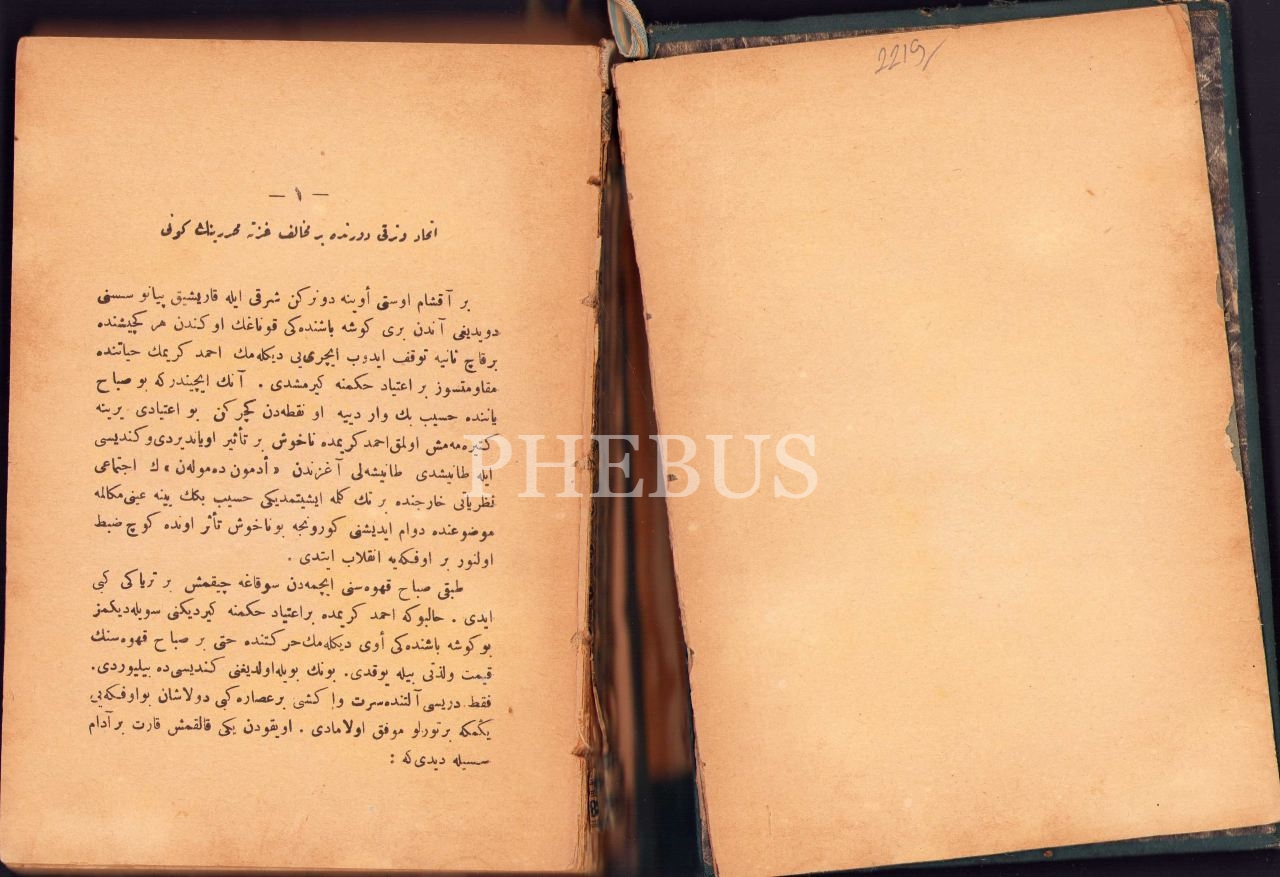 — ١ —
اتحاد و ترقی دورنده بر مخالف غزته محررینك كونی
بر آقشام اوستی أوینه دونركن شرقی ایله قاریشیق پیانو سسنی
دویدیغی آندن بری كوشه باشنده‌كی قوناغك اوكندن هر كچیشنده
برقاچ ثانیه توقف ایدوب ایچری‌یی دیكله‌مك احمد كریمك حیاتنده
مقاومتسوز بر اعتیاد حكمنه كیرمشدی . آنك ایچیندركه بو صباح
یاننده حسیب بك وار دییه او نقطه‌دن كچركن بو اعتیادی یرینه
كتیره‌مه‌مش اولمق احمد كریمده ناخوش بر تأثیر اویاندیردی و كندیسی
ایله طانیشدی طانیشه‌لی آغزندن «أدمون ده‌موله‌ن» ك اجتماعی
نظریاتی خارجنده بر تك كلمه ایشیتمدیكی حسیب بكك یینه عینی مكالمه
موضوعنده دوام ایدیشنی كورونجه بو ناخوش تأثر اونده كوچ ضبط
اولنور بر اوفكه‌یه انقلاب ایتدی .
طبقی صباح قهوه‌سنی ایچمه‌دن سوقاغه چیقمش بر تریاكی كبی
ایدی . حالبوكه احمد كریمده بر اعتیاد حكمنه كیردیكنی سویله‌دیكمز
بو كوشه باشنده‌كی أوی دیكله‌مك حركتنده حتی بر صباح قهوه‌سنك
قیمت ولذتی بیله یوقدی. بونك بویله اولدیغنی كندیسی ده بیلیوردی.
فقط دریسی آلتنده سرت و اكشی بر عصاره كبی دولاشان بو اوفكه‌یی
یكمكه برتورلو موفق اولامادی . اویقودن یكی قالقمش قارت بر آدام
سسیله دیدی كه :
2219/
PHEBUS